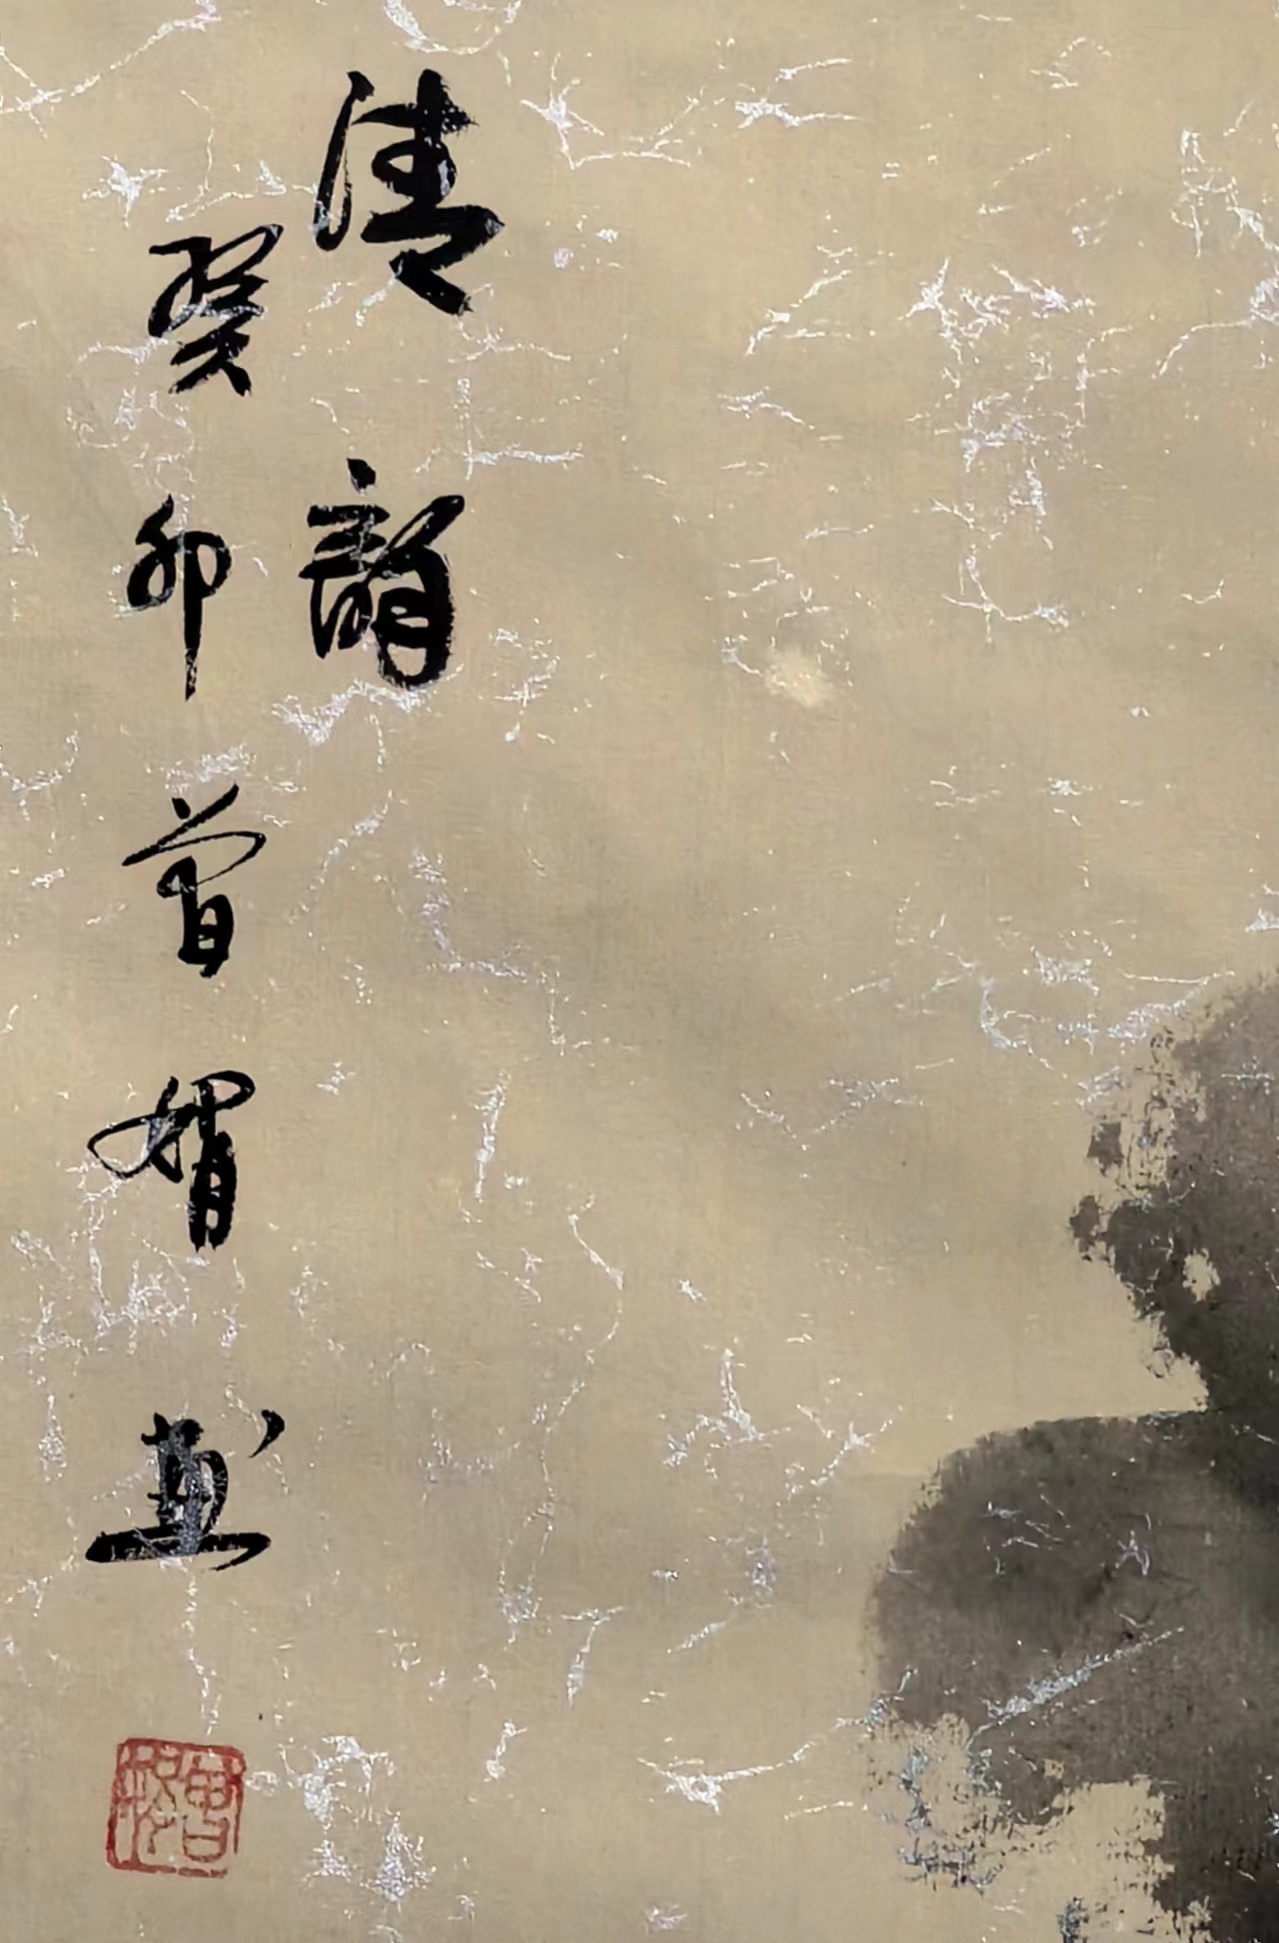 清韻
癸卯曾畫